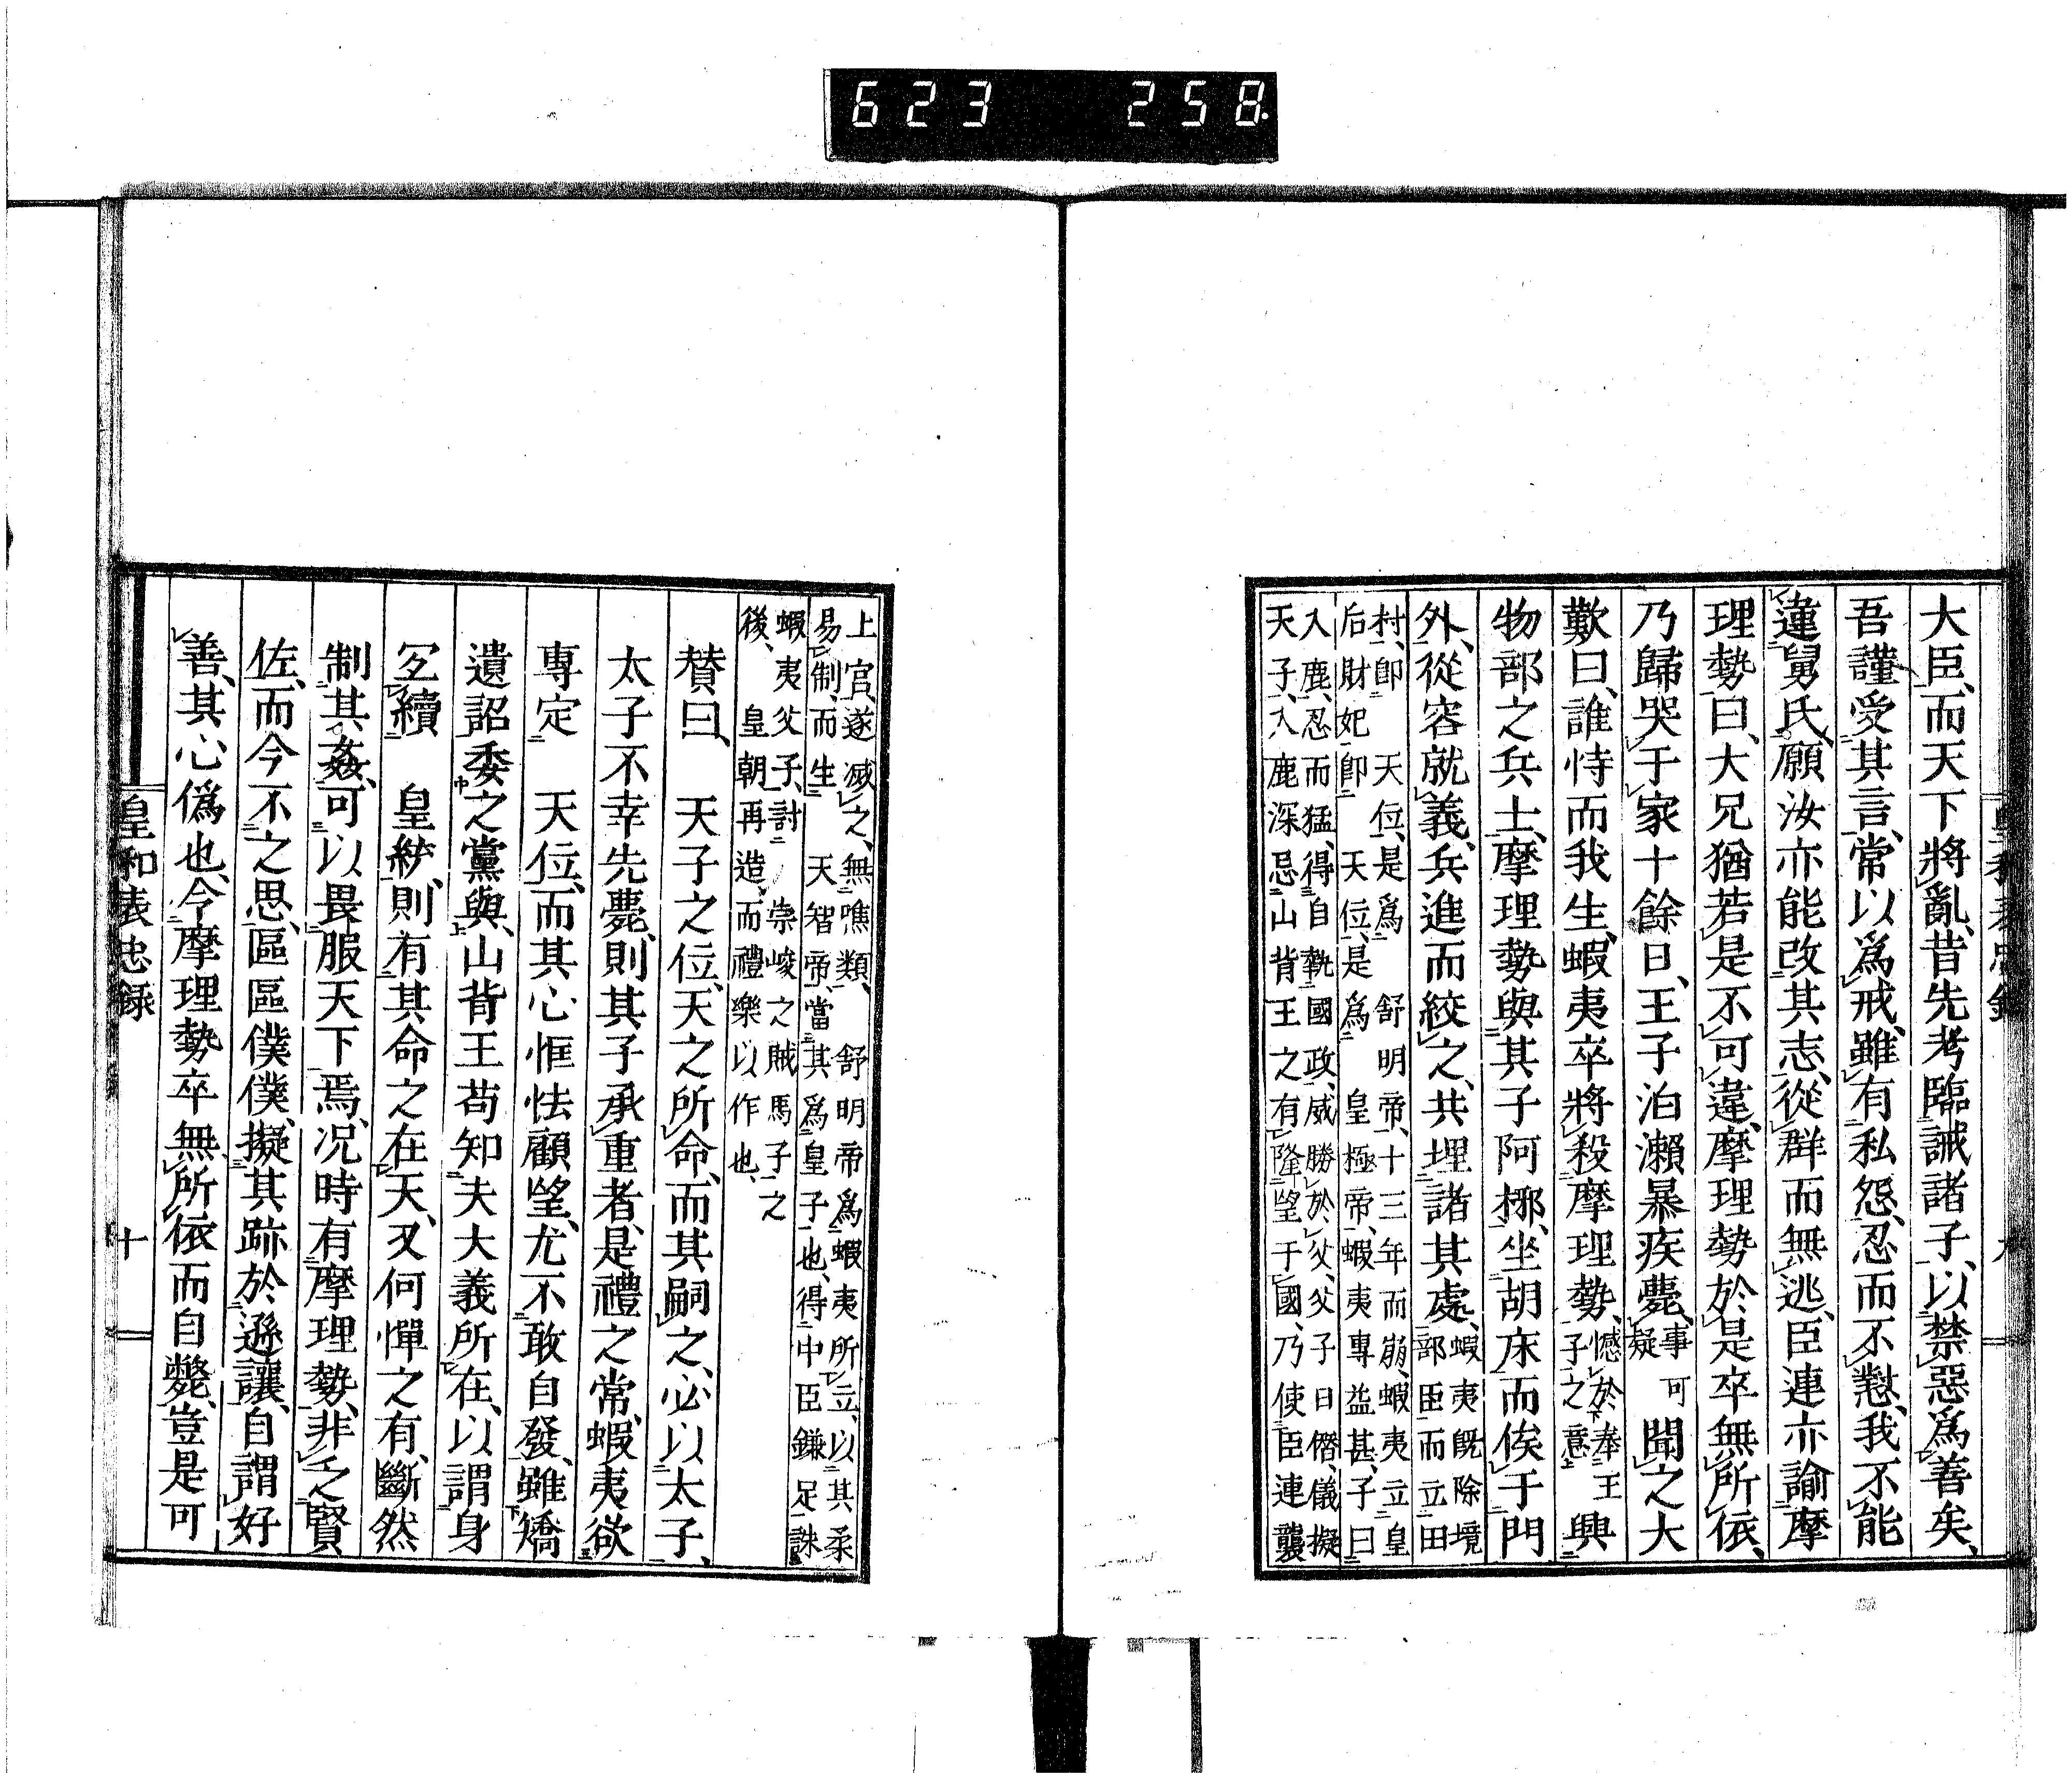 623 258
大臣、而天下將亂、昔先考臨誡諸子、以禁惡爲善矣、
吾謹受其言、常以爲戒、雖有私怨、忍而不懟、我不能
違舅氏、願汝亦能改其志、從群而無逃、臣連亦諭摩
理勢曰、大兄猶若是不可違、摩理勢於是卒無所依、
乃歸哭于家十餘日、王子泊瀬暴疾薨、事可疑聞之大
歎曰、誰恃而我生、蝦夷卒將殺摩理勢、憾於奉王子之意興
物部之兵士、摩理勢與其子阿椰、坐胡床而俟于門
外、從容就義、兵進而絞之、共埋諸其處、蝦夷既除境
部臣而立田
村、卽天位、是爲舒明帝、十三年而崩、蝦夷立皇
后財妃卽天位、是爲皇極帝、蝦夷專益甚、子曰
入鹿、忍而猛、得自執國政、威勝於父、父子日僭、儀擬
天子、入鹿深忌山背王之有隆望于國、乃使臣連襲
皇和表忠錄
九
上宮、遂滅之、無噍類、舒明帝爲蝦夷所立、以其柔
易制、而生天智帝、當其爲皇子也、得中臣鎌足誅
蝦夷父子、討崇峻之賊馬子之
後、皇朝再造、而禮樂以作也、
賛曰、天子之位、天之所命、而其嗣之、必以太子、
太子不幸先薨、則其子承重者、是禮之常、蝦夷欲
專定天位、而其心恇怯顧望、尤不敢自發、雖矯
遺詔委之黨與、山背王苟知夫大義所在、以謂身
冝續皇統、則有其命之在天、又何憚之有、斷然
制其姦、可以畏服天下焉、况時有摩理勢、非之賢
佐、而今不之思、區區僕僕、擬其跡於遜讓、自謂好
善、其心僞也、今摩理勢卒無所依而自斃、豈是可
皇和表忠錄
十